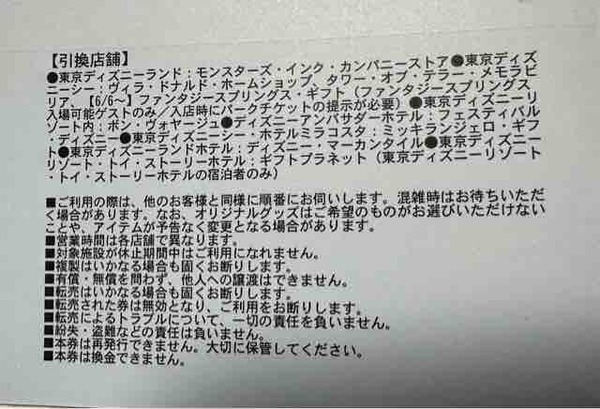 【引換店舗】
●東京ディズニーランド：モンスターズ・インク・カンパニーストア●東京ディズ
ニーシー：ヴィラ・ドナルド・ホームショップ、タワー・オブ・テラー・メモラビ
リア、【6/6～】ファンタジースプリングス・ギフト（ファンタジースプリングス
入場可能ゲストのみ／入店時にパークチケットの提示が必要）●東京ディズニーリ
ゾート内：ボン・ヴォヤージュ●ディズニーアンバサダーホテル：フェスティバル
・ディズニー●東京ディズニーシー・ホテルミラコスタ：ミッキランジェロ・ギフ
ト●東京ディズニーランドホテル：ディズニー・マーカンタイル●東京ディズニー
リゾート・トイ・ストーリーホテル：ギフトプラネット（東京ディズニーリゾート
・トイ・ストーリーホテルの宿泊者のみ）
■ご利用の際は、他のお客様と同様に順番にお伺いします。混雑時はお待ちいただ
く場合があります。なお、オリジナルグッズはご希望のものがお選びいただけない
ことや、アイテムが予告なく変更となる場合があります。
■営業時間は各店舗で異なります。
■対象施設が休止期間中はご利用になれません。
■複製はいかなる場合も固くお断りします。
■有償・無償を問わず、他人への譲渡はできません。
■転売はいかなる場合も固くお断りします。
■転売された券は無効となり、ご利用をお断りします。
■転売によるトラブルについて、一切の責任を負いません。
■紛失・盗難などの責任は負いません。
■本券は再発行できません。大切に保管してください。
■本券は換金できません。